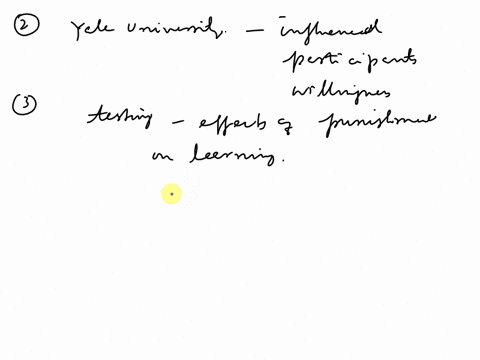 ② Yale University. — influenced
participants
willingness
③ testing — effects of punishment
on learning.